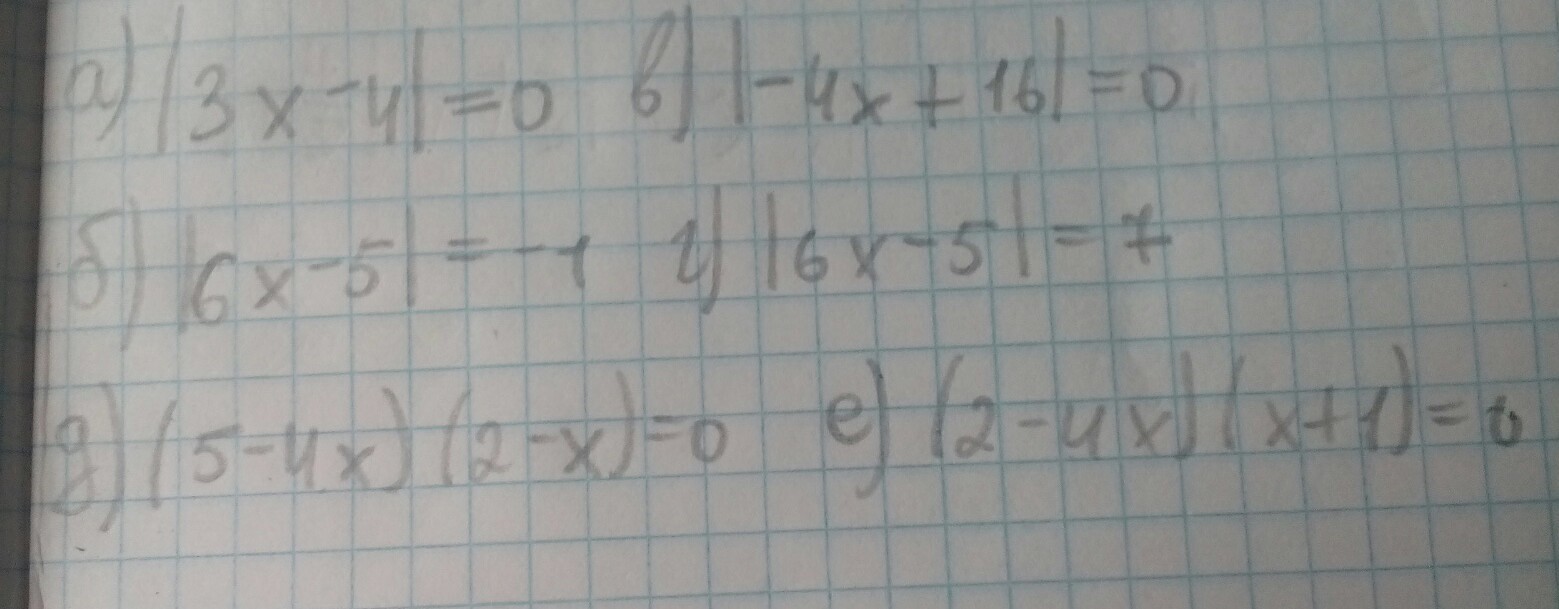 а) |3x-4|=0 в) |-4x+16|=0
б) |6x-5|=-1 г) |6x-5|=7
д) (5-4x)(2-x)=0 е) (2-4x)(x+1)=0